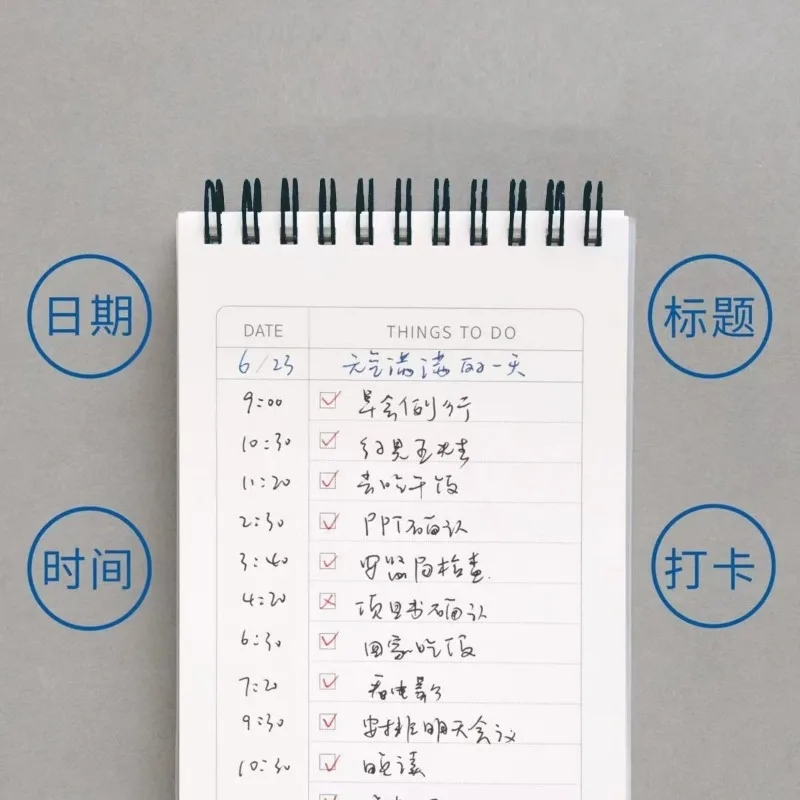 日期
标题
时间
打卡
DATE THINGS TO DO
6/23 元气满满的一天
9:00 早会例行
10:30 约见王先生
11:20 去吃午饭
2:30 PPT确认
3:40 安监局检查.
4:20 项目书确认
6:30 回家吃饭
7:20 看电影
9:30 安排明天会议
10:30